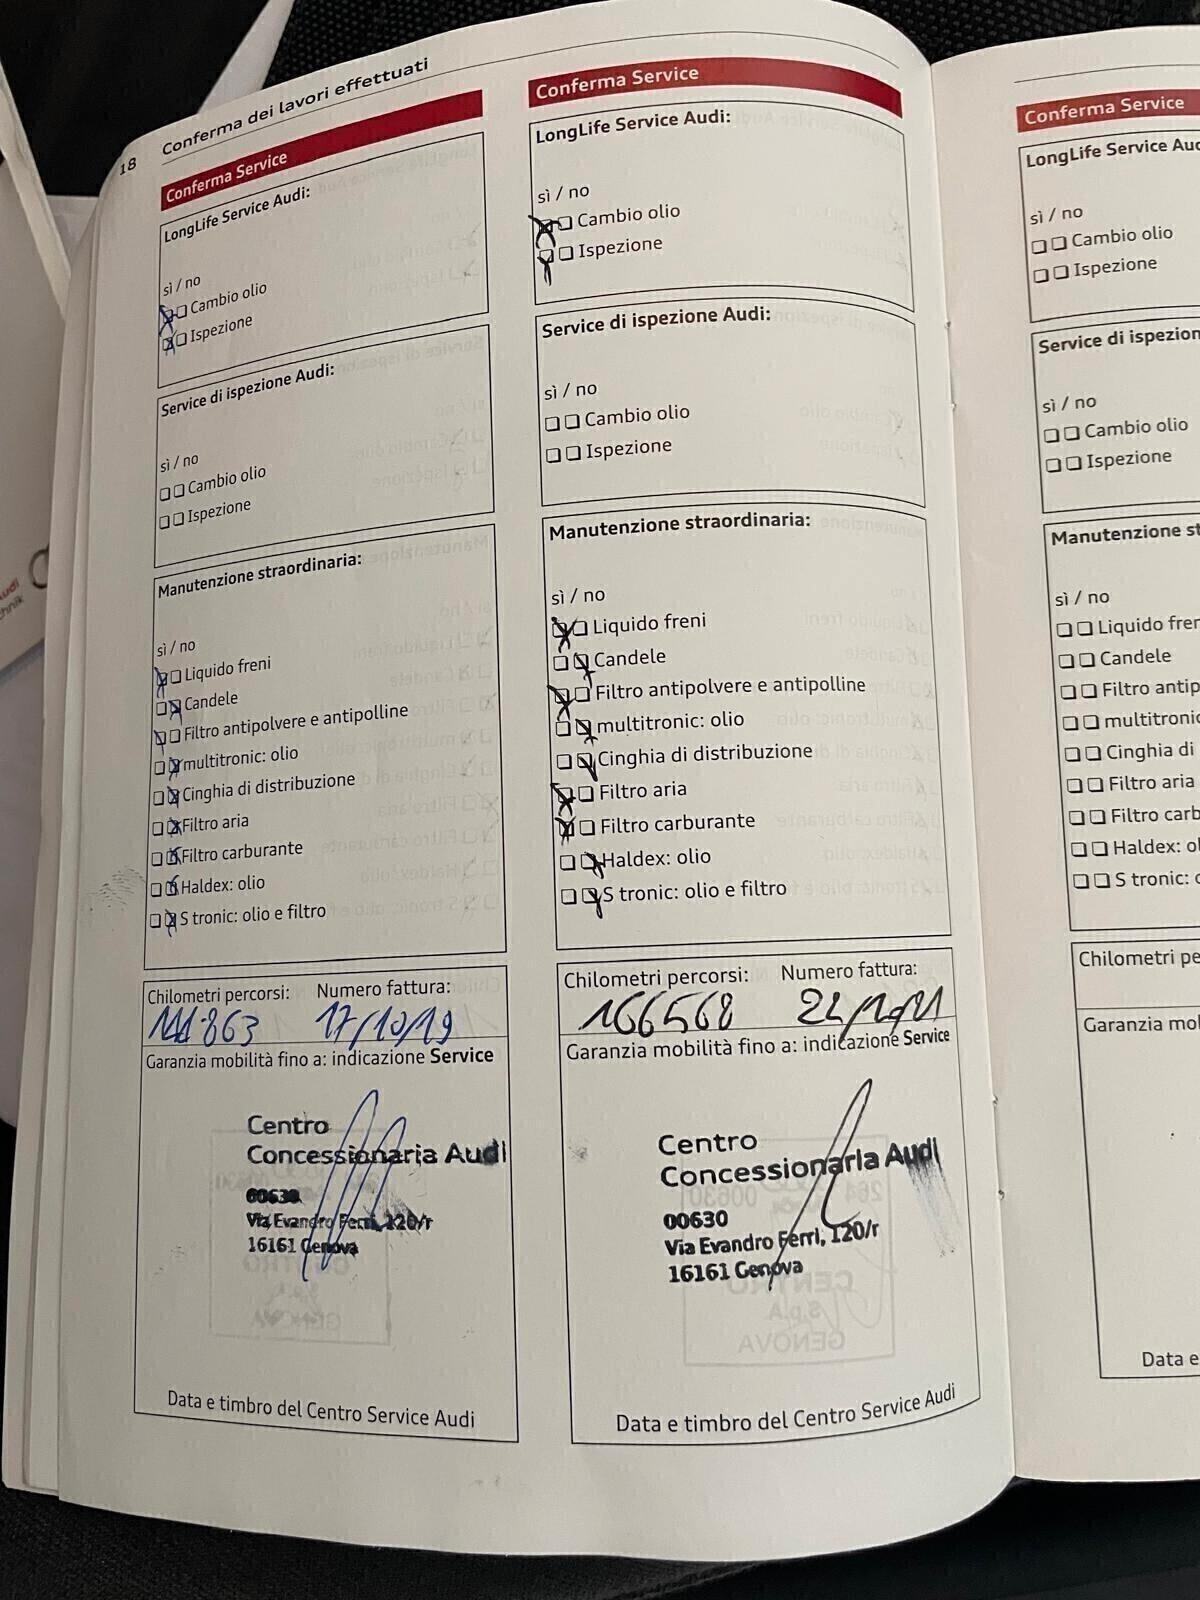 18 Conferma dei lavori effettuati
Conferma Service
LongLife Service Audi:
sì / no
Cambio olio
Ispezione
Service di ispezione Audi:
sì / no
Cambio olio
Ispezione
Manutenzione straordinaria:
sì / no
Liquido freni
Candele
Filtro antipolvere e antipolline
multitronic: olio
Cinghia di distribuzione
Filtro aria
Filtro carburante
Haldex: olio
S tronic: olio e filtro
Chilometri percorsi: Numero fattura:
111863 17/10/19
Garanzia mobilità fino a: indicazione Service
Centro
Concessionaria Audi
00630
Via Evandro Ferri, 120/r
16161 Genova
Data e timbro del Centro Service Audi
Conferma Service
LongLife Service Audi:
sì / no
Cambio olio
Ispezione
Service di ispezione Audi:
sì / no
Cambio olio
Ispezione
Manutenzione straordinaria:
sì / no
Liquido freni
Candele
Filtro antipolvere e antipolline
multitronic: olio
Cinghia di distribuzione
Filtro aria
Filtro carburante
Haldex: olio
S tronic: olio e filtro
Chilometri percorsi: Numero fattura:
166568
Garanzia mobilità fino a: indicazione Service
Centro
Concessionaria Audi
00630
Via Evandro Ferri, 120/r
16161 Genova
Data e timbro del Centro Service Audi
Conferma Service
LongLife Service Aud
sì / no
Cambio olio
Ispezione
Service di ispezion
sì / no
Cambio olio
Ispezione
Manutenzione st
sì / no
Liquido fren
Candele
Filtro antip
multitronic
Cinghia di
Filtro aria
Filtro carb
Haldex: ol
S tronic: o
Chilometri pe
Garanzia mob
Data e